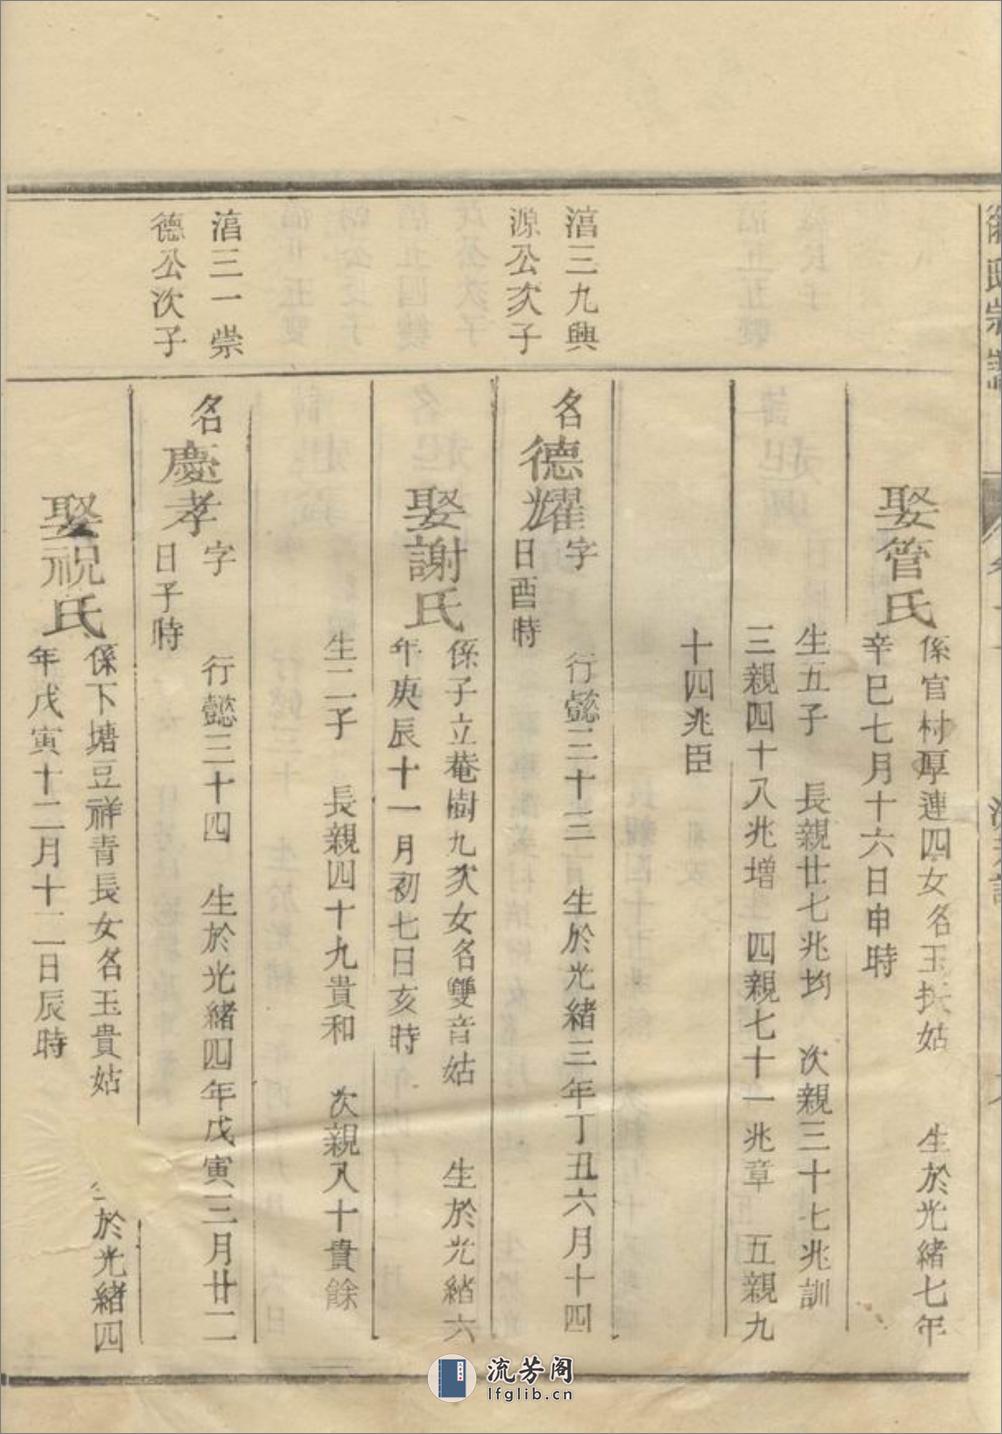 氏宗譜
娶管氏
係官村厚連四女名玉扶姑 生於光緒七年
辛巳七月十六日申時
生五子 長親廿七兆均 次親三十七兆訓
三親四十八兆增 四親七十一兆章 五親九
十四兆臣
湻三九興
源公次子
名德耀
字 行懿三十三 生於光緒三年丁丑六月十四
日酉時
娶謝氏
係子立菴樹九次女名雙音姑 生於光緒六
年庚辰十一月初七日亥時
生二子 長親四十九貴和 次親八十貴餘
湻三一崇
德公次子
名慶孝
字 行懿三十四 生於光緒四年戊寅三月廿二
日子時
娶祝氏
係下塘豆祥青長女名玉貴姑 生於光緒四
年戊寅十二月十二日辰時
流芳阁
lfglib.cn